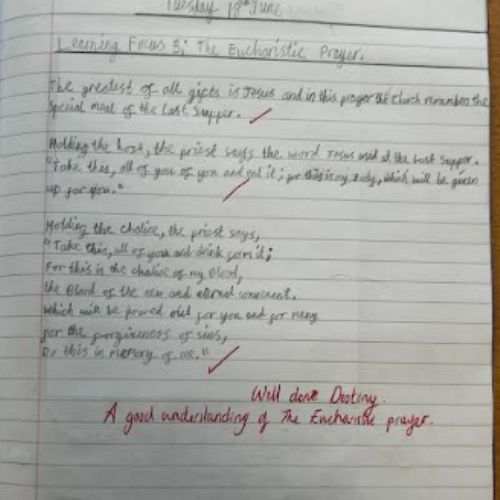 Tuesday 18th June
Learning Focus 5: The Eucharistic Prayer.
The greatest of all gifts is Jesus and in this prayer the Church remembers the
special meal of the Last Supper.
Holding the host, the priest says the word Jesus used at the Last Supper.
"Take this, all of you of you and eat it; for this is my Body, which will be given
up for you."
Holding the chalice, the priest says,
"Take this, all of you and drink from it;
For this is the chalice of my Blood,
the Blood of the new and eternal covenant.
which will be poured out for you and for many
for the forgiveness of sins,
Do this in memory of me."
Well done Destiny.
A good understanding of The Eucharistic prayer.